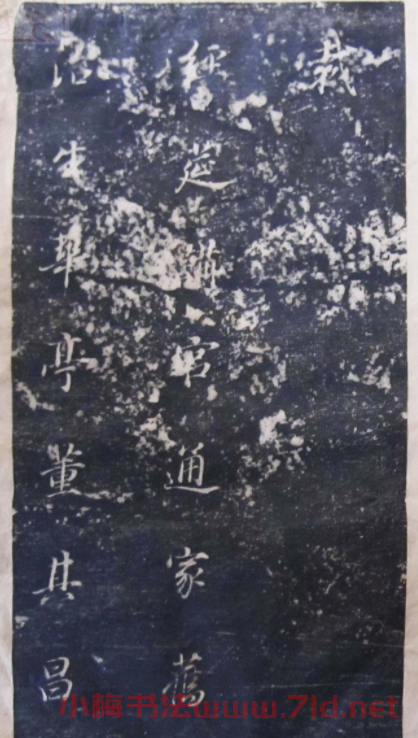 哉
經筵講官通家舊
治生華亭董其昌
小梅书法www.7ld.net